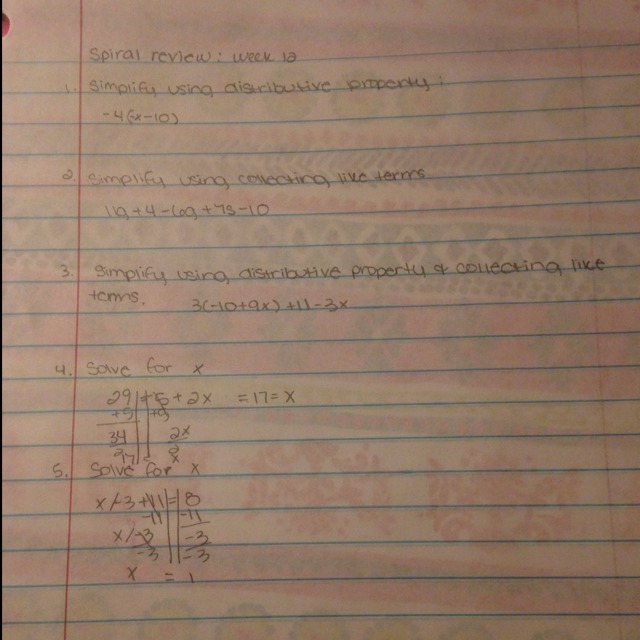 Spiral review: week 12
1. Simplify using distributive property:
-4(x-10)
2. Simplify using collecting like terms
11g+4-6g+7s-10
3. Simplify using distributive property & collecting like
terms. 3(-10+9x)+11-3x
4. Solve for x
29 = -5 + 2x =17=x
+5 +5
34 2x
2 2
17 x
5. Solve for x
x/-3+11=8
-11 -11
x/-3 -3
-3 -3
x = 1